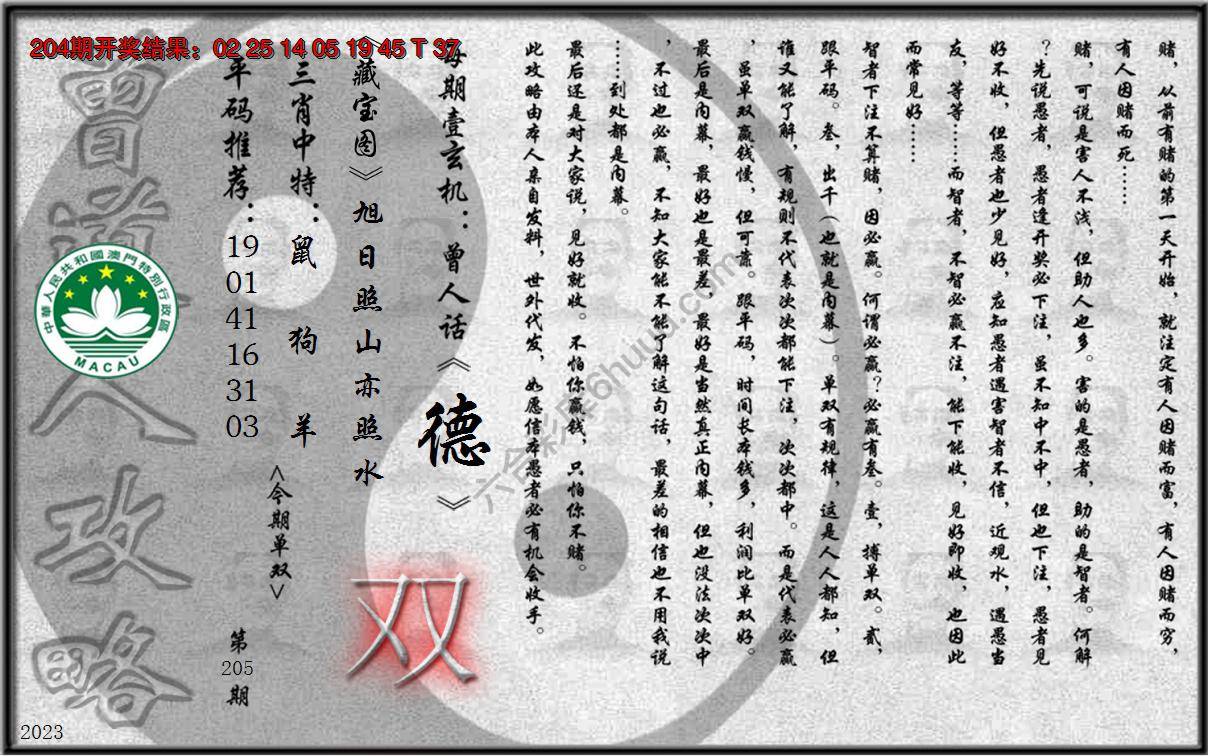 204期开奖结果：02 25 14 05 19 45 T 37
赌，从前有赌的第一天开始，就注定有人因赌而富，有人因赌而穷，
有人因赌而死……
赌，可说是害人不浅，但助人也多。害的是愚者，助的是智者。何解
？先说愚者，愚者逢开奖必下注，虽不知中不中，但也下注，愚者见
好不收，但愚者也少见好，应知愚者遇害智者不信，近观水，遇愚当
友，等等……而智者，不智必赢不注，能下能收，见好即收，也因此
而常见好……
智者下注不算赌，因必赢。何谓必赢？必赢有叁。壹，搏单双。贰，
跟平码。叁，出千（也就是内幕）。单双有规律，这是人人都知，但
谁又能了解，有规则不代表次次都能下注，次次都中。而是代表必赢
，虽单双赢钱慢，但可靠。跟平码，时间长本钱多，利润比单双好。
最后是内幕，最好也是最差，最好是当然真正内幕，但也没法次次中
，不过也必赢，不知大家能不能了解这句话，最差的相信也不用我说
……到处都是内幕。
最后还是对大家说，见好就收。不怕你赢钱，只怕你不赌。
此攻略由本人亲自发料，世外代发，如愿信本愚者必有机会收手。
每期壹玄机：曾人话《德》
《藏宝图》旭日照山亦照水
三肖中特：鼠 狗 羊
<今期单双>
双
平码推荐：
19
01
41
16
31
03
第
205
期
曾道人攻略
中華人民共和國澳門特別行政區
MACAU
六合彩库6huuu.com
2023